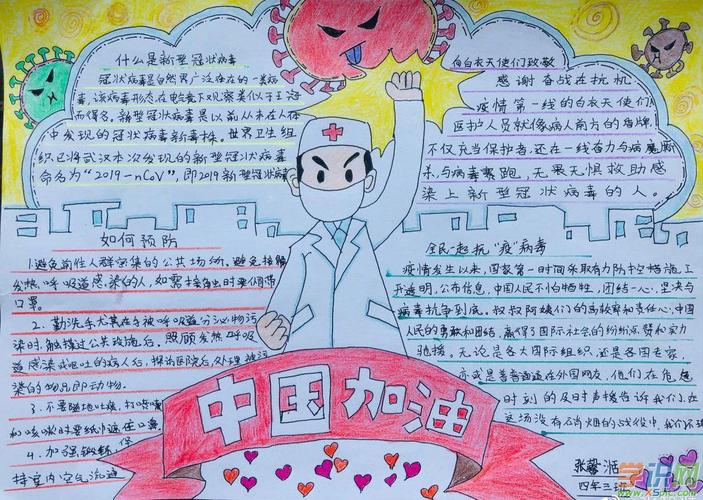 什么是新型冠状病毒
冠状病毒是自然界广泛存在的一类病
毒，该病毒形态在电镜下观察类似于王冠
而得名。新型冠状病毒是以前从未在人体
中发现的冠状病毒新毒株。世界卫生组
织已将武汉本次发现的新型冠状病毒
命名为“2019-nCoV”，即2019新型冠状病毒
向白衣天使们致敬
感谢奋战在抗机
疫情第一线的白衣天使们
医护人员就像病人前方的盾牌
不仅充当保护者还在一线奋力与病魔厮
杀，与病毒赛跑，无畏无惧救助感
染上新型冠状病毒的人。
如何预防
1.避免前往人群密集的公共场所。避免接触
发热呼吸道感染的人，如需接触时要佩带
口罩。
2.勤洗手尤其在手被呼吸道分泌物污
染时，触摸过公共设施后，照顾发热呼吸
道感染或呕吐的病人后，探访医院后，处理被污
染的物见即动物。
3.不要随地吐痰，打喷嚏
和咳嗽时要纸巾遮住口鼻。
4.加强锻炼，保
持室内空气流通
全民一起抗“疫”病毒
疫情发生以来，国家第一时间采取有力防控措施，公
开透明，公布信息，中国人民不怕牺牲，团结一心，坚决与
病毒抗争到底。叔叔阿姨们的高效率和责任心，中国
人民的勇敢和团结，赢得了国际社会的纷纷点赞和实力
驰援。无论是各大国际组织还是各国专家，
亦或是普普通通在外国网友，他们在危急
时刻的及时声援告诉我们，在
这场没有硝烟的战役中，我们不
中国加油
张馨
四年三班
学识网